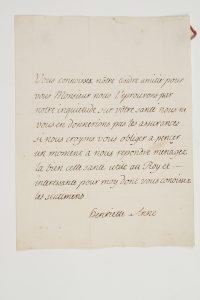 Vous connoissez nôtre tendre amitié pour
vous Monsieur nous l'eprouvons par
notre inquietude sur vôtre santé nous ne
vous en donnerions pas les assurances
si nous croyons vous obliger a penser
un moment a nous repondre menagez
la bien cette santé utile au Roy et
interessante pour moy dont vous connoissez
les sentimens
Henriette Anne